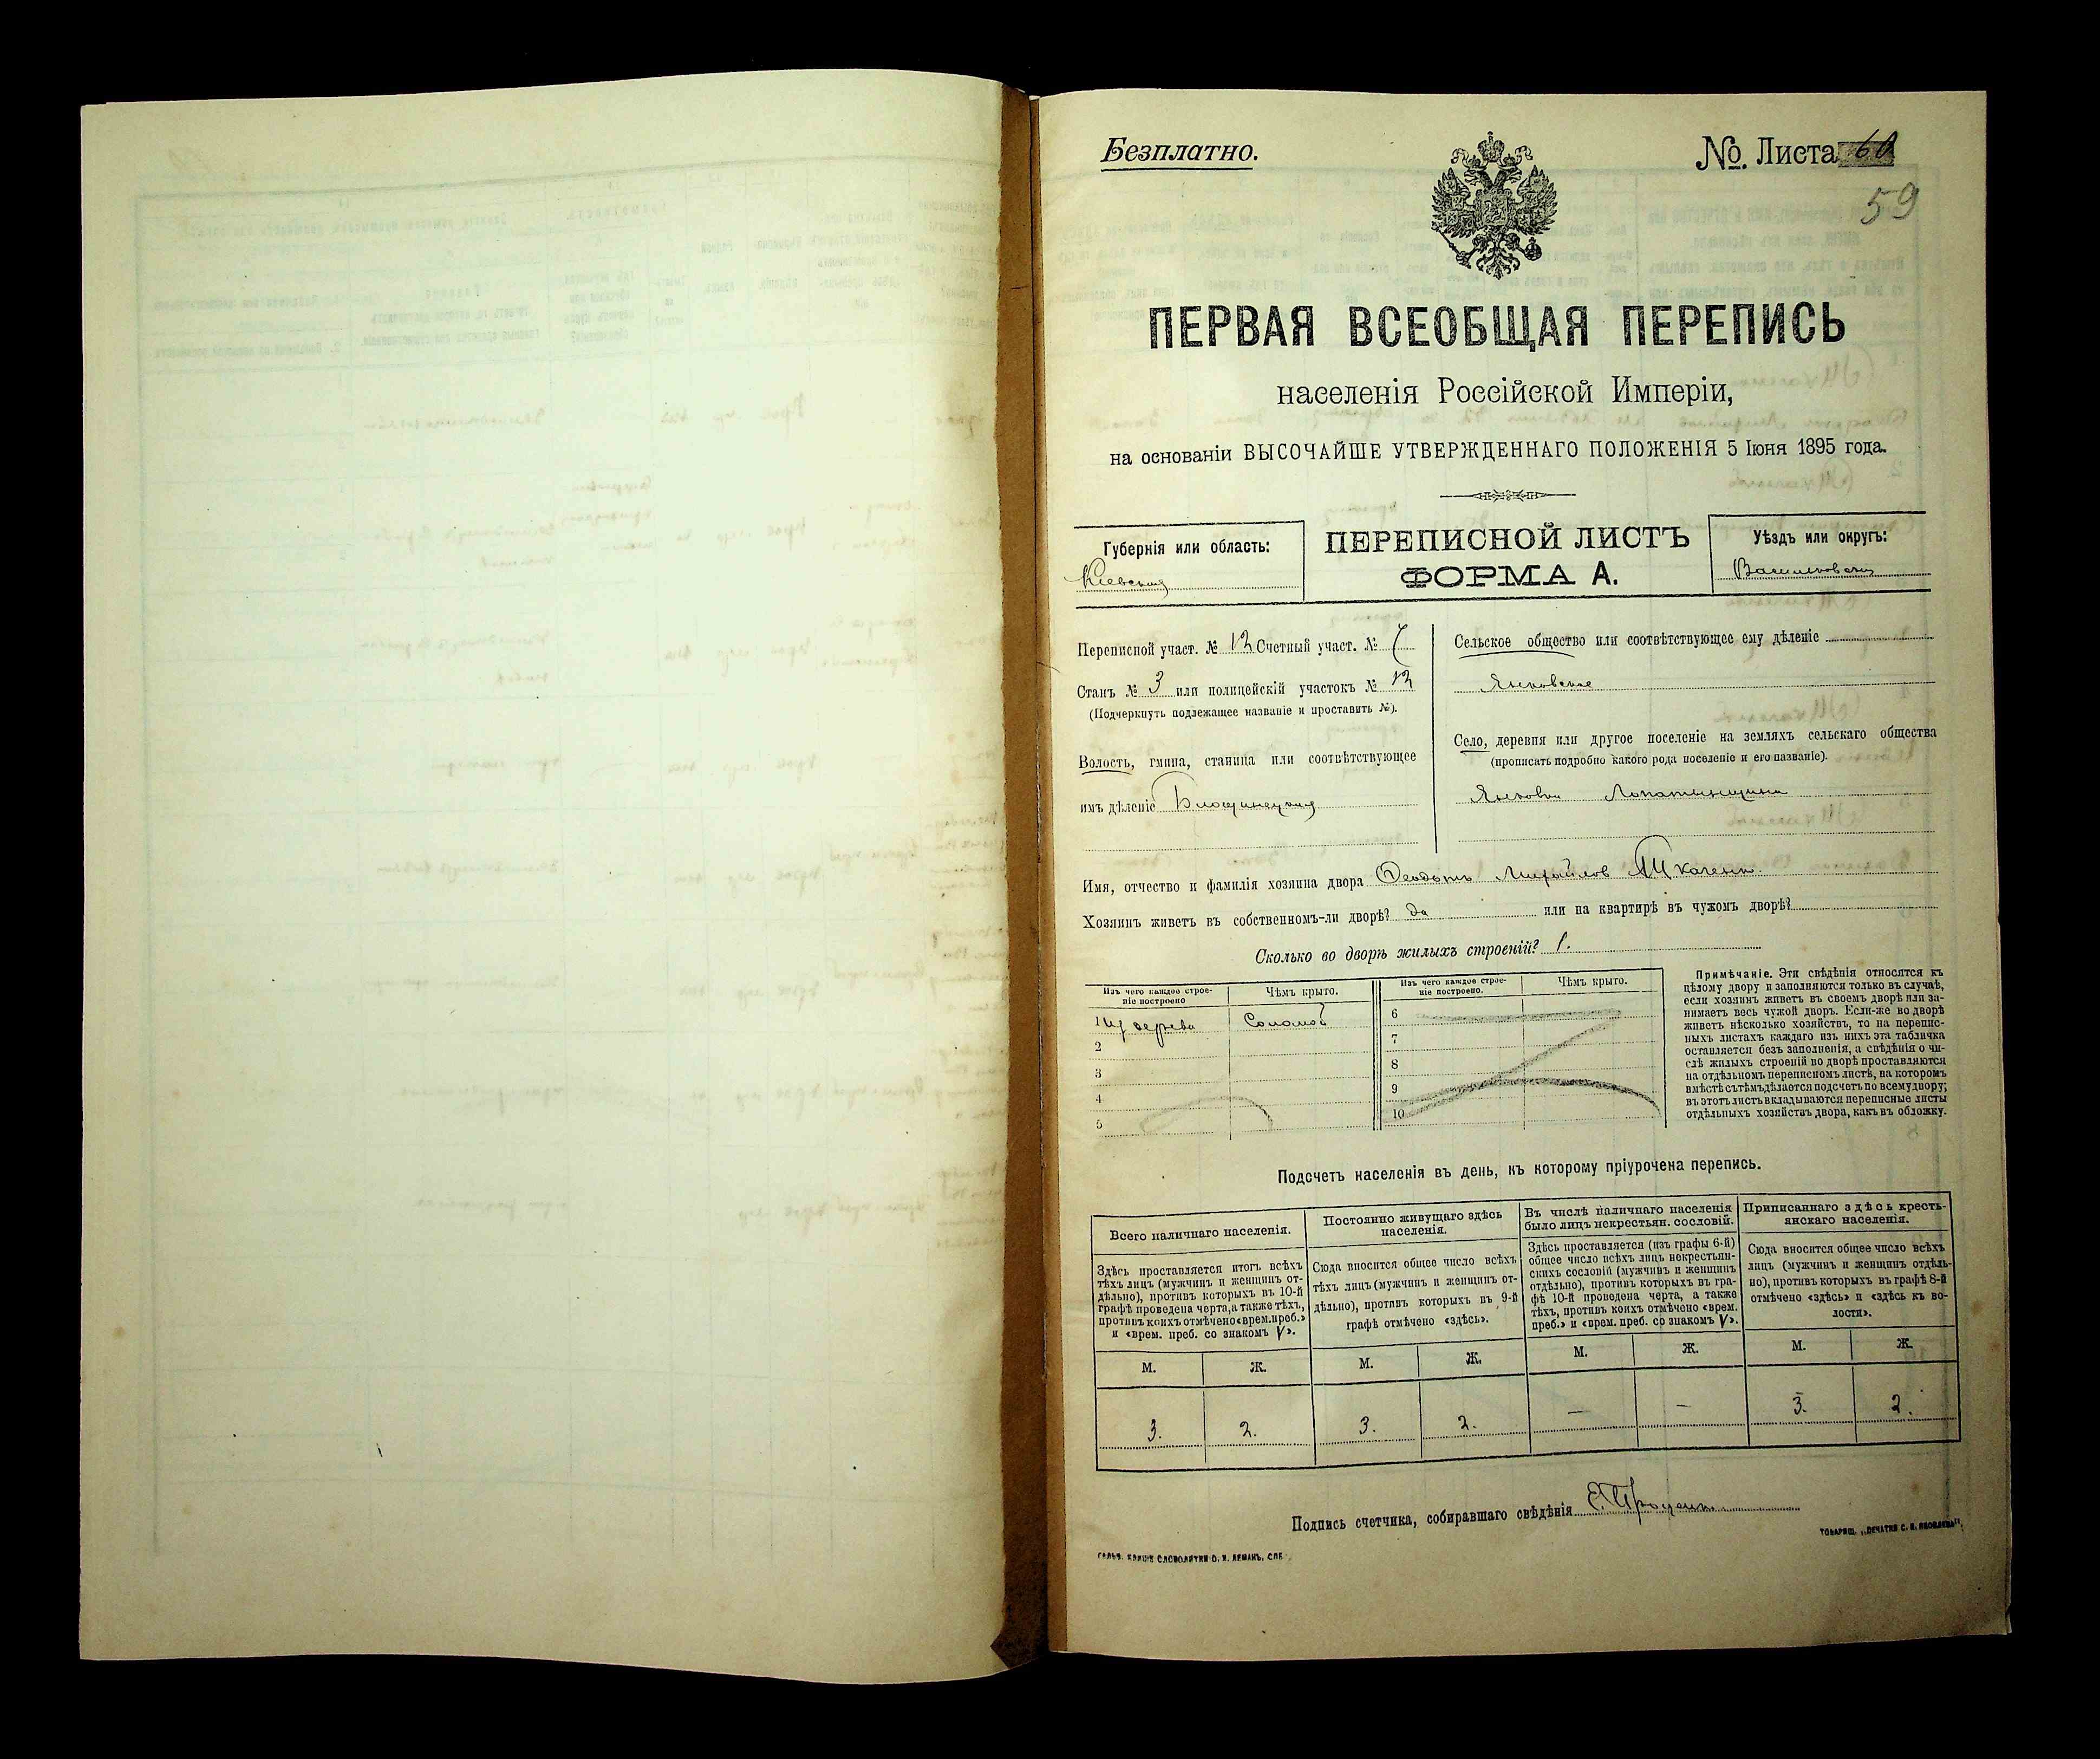 Безплатно.
№. Листа 60
59
ПЕРВАЯ ВСЕОБЩАЯ ПЕРЕПИСЬ
населенія Россійской Имперіи,
на основаніи ВЫСОЧАЙШЕ УТВЕРЖДЕННАГО ПОЛОЖЕНІЯ 5 Іюня 1895 года.
Губернія или область:
Кіевская
ПЕРЕПИСНОЙ ЛИСТЪ
ФОРМА А.
Уѣздъ или округъ:
Васильковскій
Переписной участ. № 12 Счетный участ. № 7
Станъ № 3 или полицейскій участокъ № 12
(Подчеркнуть подлежащее названіе и проставить №).
Волость, гмина, станица или соотвѣтствующее
имъ дѣленіе
Сельское общество или соотвѣтствующее ему дѣленіе
Янковское
Село, деревня или другое поселеніе на земляхъ сельскаго общества
(прописать подробно какого рода поселеніе и его названіе).
Янковка Лопатинщина
Имя, отчество и фамилія хозяина двора Феодотъ Михайлов Ткаченко.
Хозяинъ живетъ въ собственномъ-ли дворѣ? да или на квартирѣ въ чужомъ дворѣ?
Сколько во дворѣ жилыхъ строеній? 1.
Изъ чего каждое строе-
ніе построено
Чѣмъ крыто.
Изъ чего каждое строе-
ніе построено.
Чѣмъ крыто.
1 из дерева Соломой
2
3
4
5
6
7
8
9
10
Примѣчаніе. Эти свѣдѣнія относятся къ
цѣлому двору и заполняются только въ случаѣ,
если хозяинъ живетъ въ своемъ дворѣ или за-
нимаетъ весь чужой дворъ. Если-же во дворѣ
живетъ нѣсколько хозяйствъ, то на перепис-
ныхъ листахъ каждаго изъ нихъ эта табличка
оставляется безъ заполненія, а свѣдѣнія о чи-
слѣ жилыхъ строеній во дворѣ проставляются
на отдѣльномъ переписномъ листѣ, на которомъ
вмѣстѣ съ тѣмъ дѣлается подсчетъ по всему двору;
въ этотъ листъ вкладываются переписные листы
отдѣльныхъ хозяйствъ двора, какъ въ обложку.
Подсчетъ населенія въ день, къ которому пріурочена перепись.
Всего наличнаго населенія.
Здѣсь проставляется итогъ всѣхъ
тѣхъ лицъ (мужчинъ и женщинъ от-
дѣльно), противъ которыхъ въ 10-й
графѣ проведена черта, а также тѣхъ,
противъ коихъ отмѣчено «врем. преб.»
и «врем. преб. со знакомъ V».
Постоянно живущаго здѣсь
населенія.
Сюда вносится общее число всѣхъ
тѣхъ лицъ (мужчинъ и женщинъ от-
дѣльно), противъ которыхъ въ 9-й
графѣ отмѣчено «здѣсь».
Въ числѣ наличнаго населенія
было лицъ некрестьян. сословій.
Здѣсь проставляется (изъ графы 6-й)
общее число всѣхъ лицъ некрестьян-
скихъ сословій (мужчинъ и женщинъ
отдѣльно), противъ которыхъ въ гра-
фѣ 10-й проведена черта, а также
тѣхъ, противъ коихъ отмѣчено «врем.
преб.» и «врем. преб. со знакомъ V».
Приписаннаго здѣсь кресть-
янскаго населенія.
Сюда вносится общее число всѣхъ
лицъ (мужчинъ и женщинъ отдѣль-
но), противъ которыхъ въ графѣ 8-й
отмѣчено «здѣсь» и «здѣсь къ во-
лости».
М. Ж. М. Ж. М. Ж. М. Ж.
3. 2. 3. 2. — — 3. 2.
Подпись счетчика, собиравшаго свѣдѣнія
ТОВАРИЩ. „ПЕЧАТНЯ С. П. ЯКОВЛЕВА".
ГАЛЬВ. КЛИШЕ СЛОВОЛИТНИ О. И. ЛЕМАНЪ, СПБ.